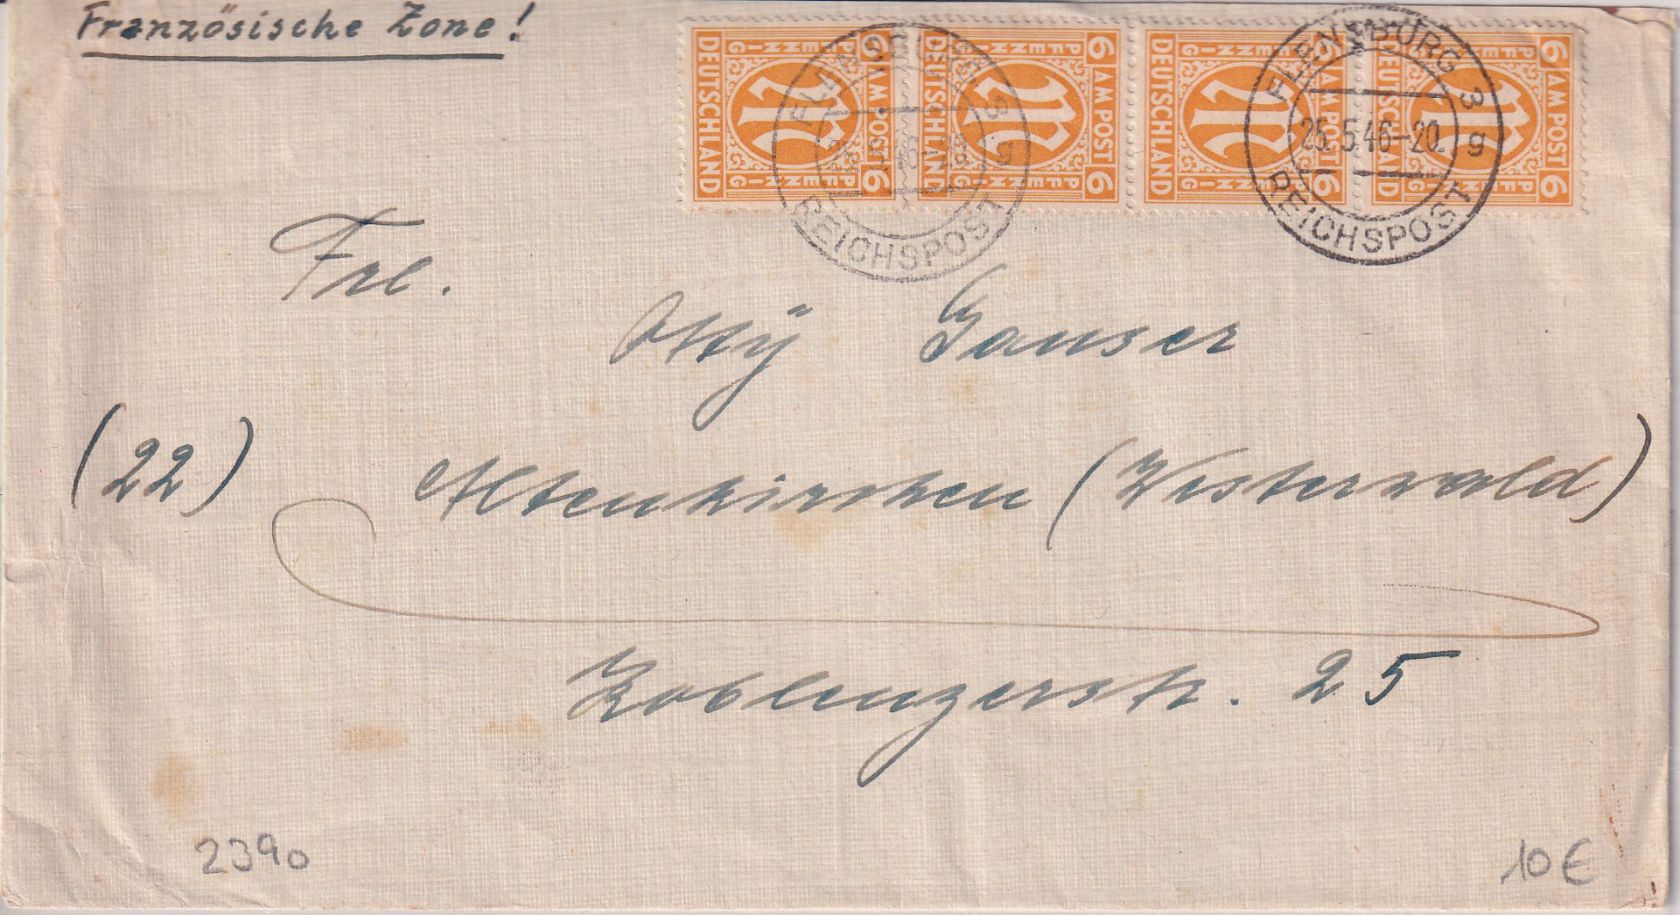 Französische Zone!
DEUTSCHLAND PFENNIG 6 AM POST 6
DEUTSCHLAND PFENNIG 6 AM POST 6
DEUTSCHLAND PFENNIG 6 AM POST 6
DEUTSCHLAND PFENNIG 6 AM POST 6
FLENSBURG 3 g
REICHSPOST
FLENSBURG 3 g
25.5.46-20
REICHSPOST
Frl.
Otty Ganser
(22) Altenkirchen (Westerwald)
Koblenzerstr. 25
2390
10€